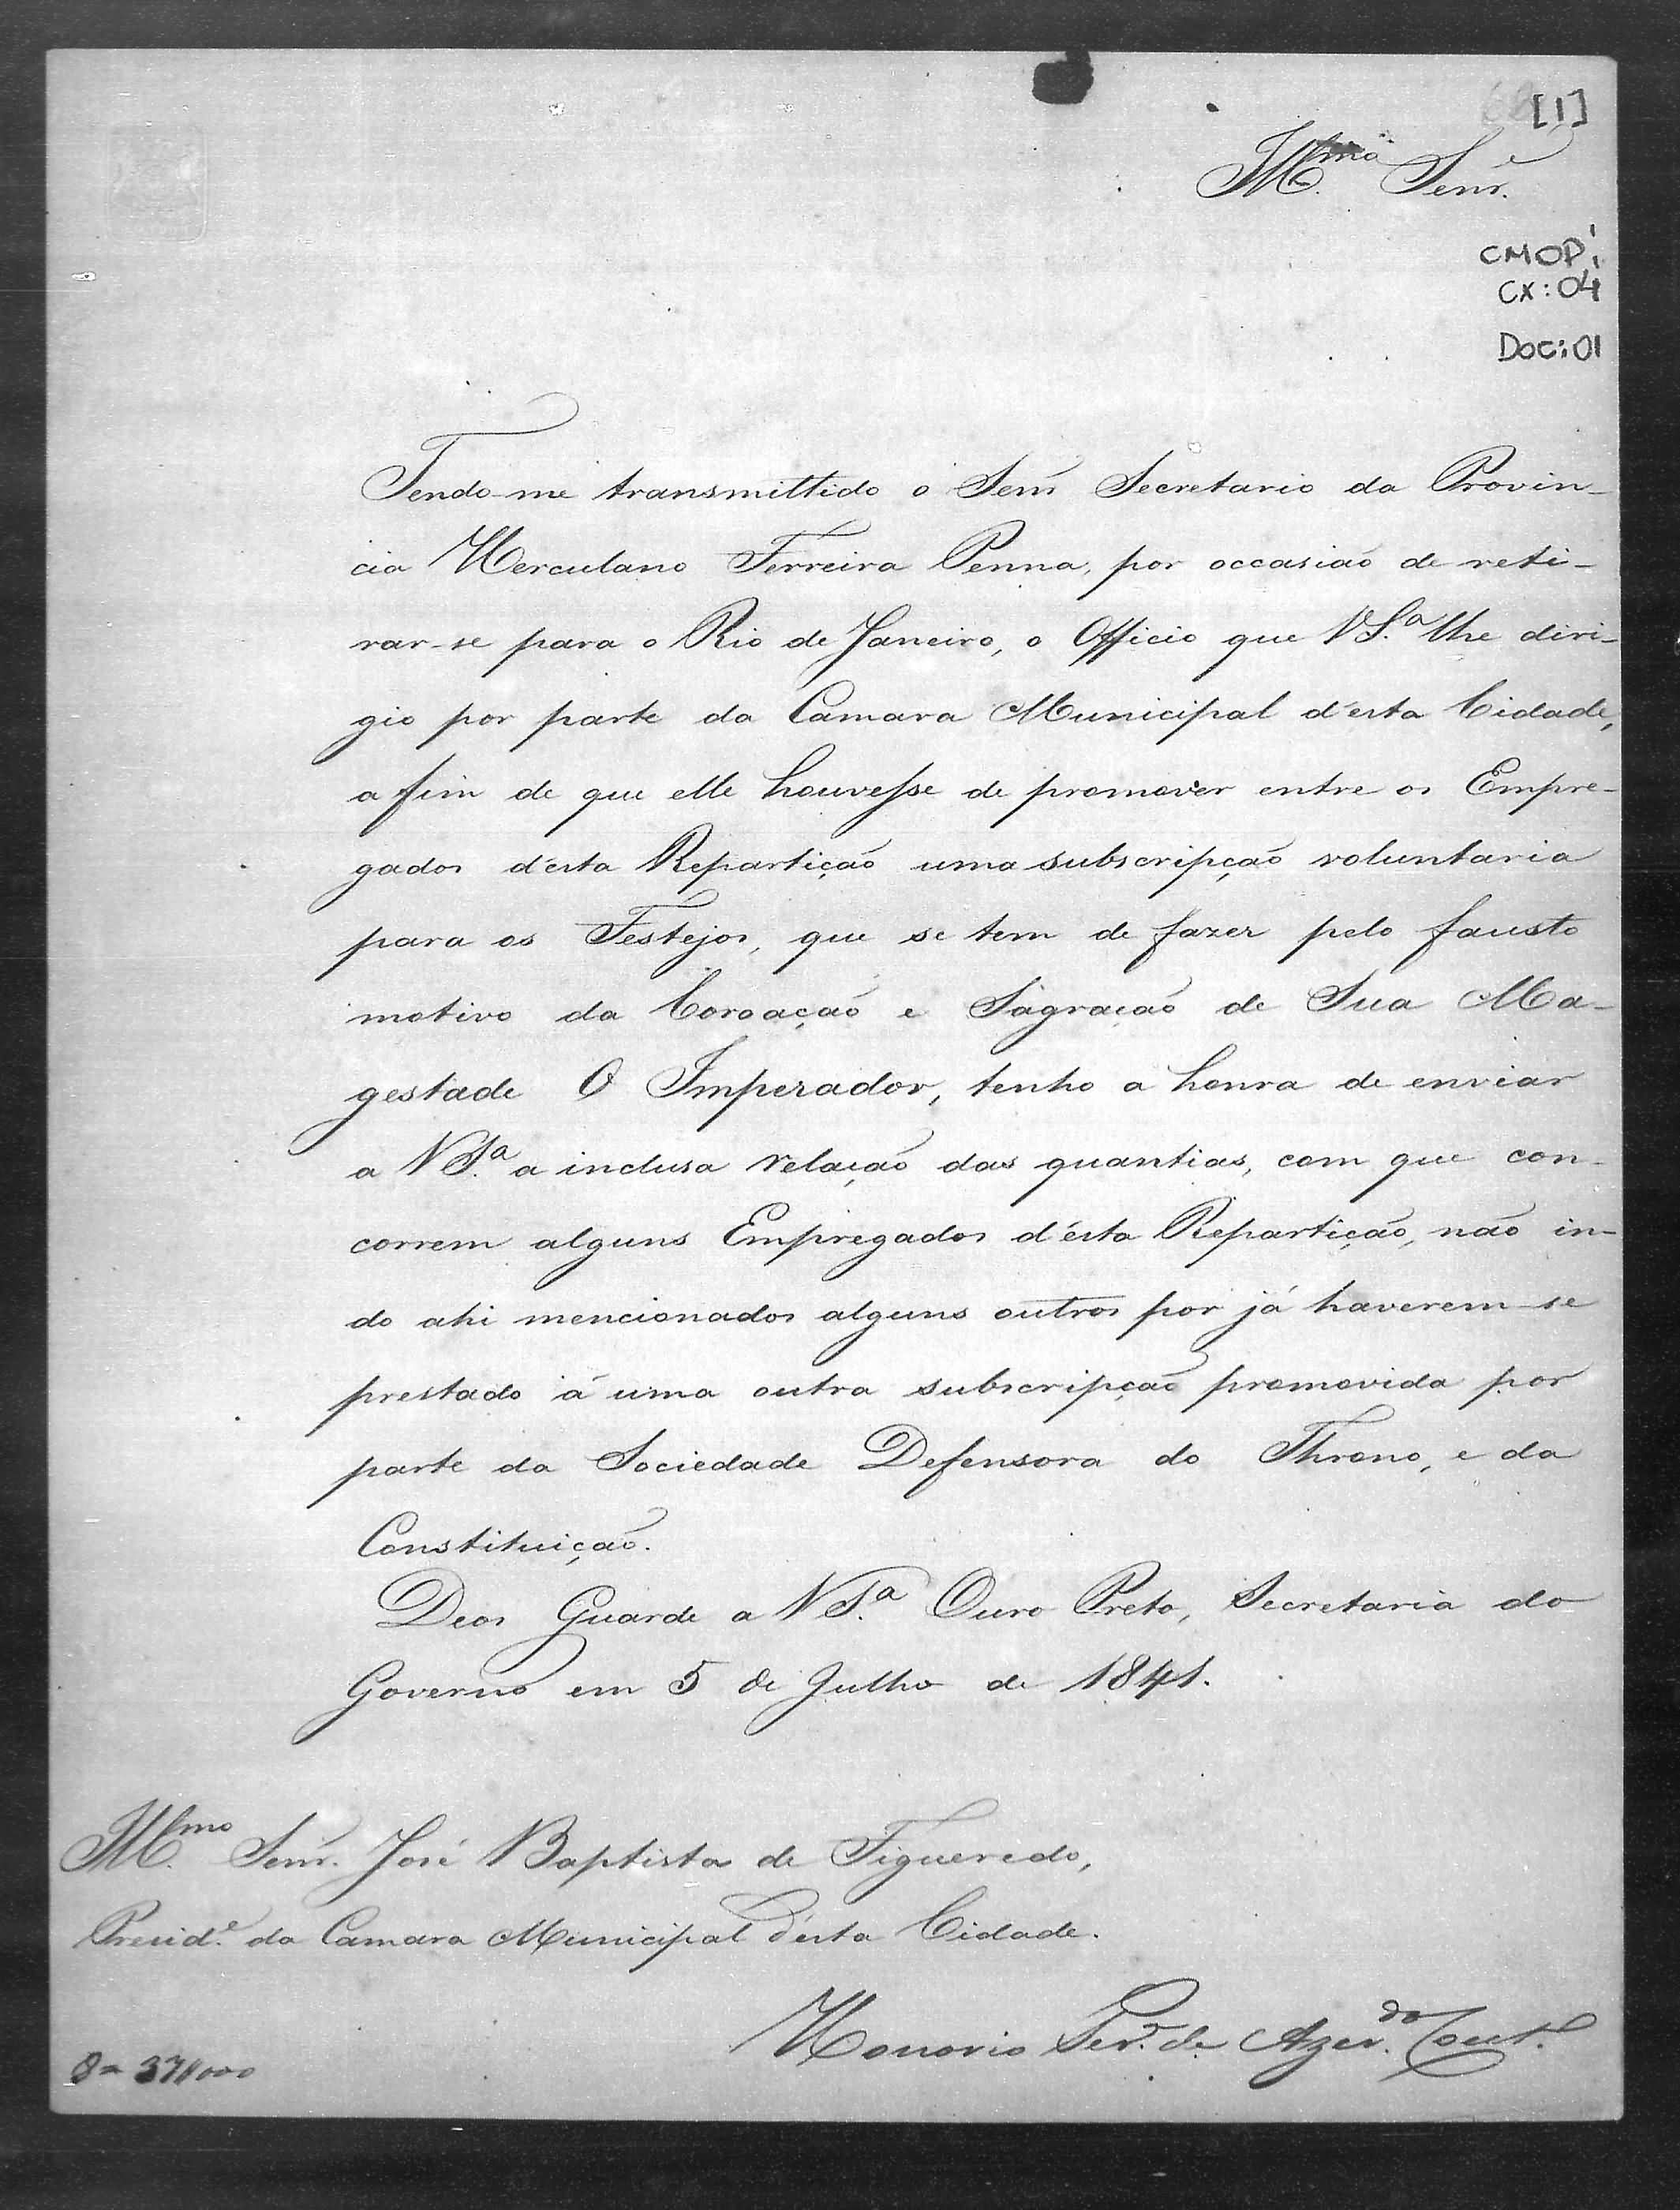 [1]
Illmo. Senr.
CMOP:
CX:04
Doc:01
Tendo-me transmittido o Senr Secretario da Provin-
cia Herculano Ferreira Penna, por occasião de reti-
rar-se para o Rio de Janeiro, o Officio que VS.ª lhe diri-
gio por parte da Camara Municipal d'esta Cidade,
a fim de que elle houvesse de promover entre os Empre-
gados d'esta Repartição uma subscripção voluntaria
para os Festejos, que se tem de fazer pelo fausto
motivo da Coroação e Sagração de Sua Ma-
gestade O Imperador, tenho a honra de enviar
a VS.ª a inclusa relação das quantias, com que con-
correm alguns Empregados d'ésta Repartição, não in-
do ahi mencionados alguns outros por já haverem-se
prestado á uma outra subscripção promovida por
parte da Sociedade Defensora do Throno, e da
Constituição.
Deos Guarde a VS.ª Ouro Preto, Secretaria do
Governo em 5 de Julho de 1841.
Illmo. Senr. José Baptista de Figueredo,
Presid.e da Camara Municipal d'esta Cidade.
Honorio Fer.ª de Azev.do Cout.º